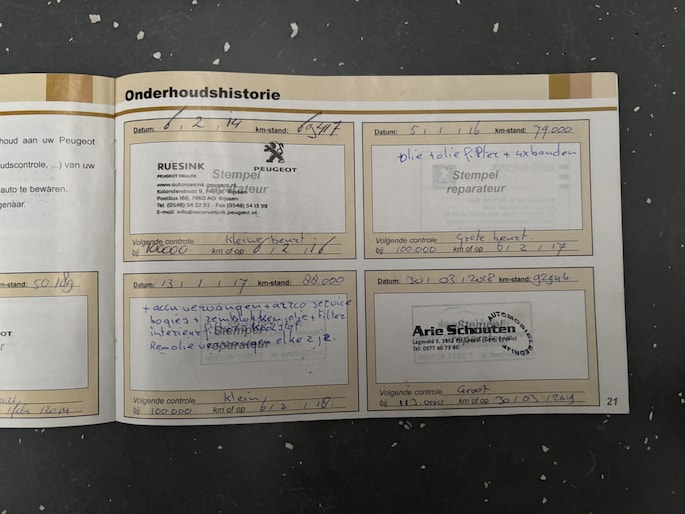 Onderhoudshistorie
houd aan uw Peugeot
udscontrole, ...) van uw
auto te bewaren.
genaar.
m-stand: 50189
EOT
r
Datum: 6 , 2 , 14 km-stand: 69417
RUESINK
PEUGEOT DEALER
PEUGEOT
Stempel
reparateur
www.autoruesink.peugeot.nl
Kalanderstraat 9, Rijssen
Postbus 166, 7460 AD Rijssen
Tel (0548) 54 32 93 - Fax (0548) 54 13 99
Volgende controle Kleine beurt
bij 100.000 km of op 6 / 2 / 16
Datum: 5 , 1 , 16 km-stand: 79.000
olie + oliefilter + 4x banden
Stempel
reparateur
Volgende controle Grote beurt
bij 100.000 km of op 6 / 2 / 17
Datum: 13 / 1 / 17 km-stand: 88.000
+ accu vervangen + airco service
bogies + remblokken, olie + filter
interieur
Stempel
reparateur
Remolie vervangen elke 2 j.
Volgende controle Klein
bij 100.000 km of op 6 / 2 / 18
Datum: 30 / 03 / 2018 km-stand: 92946
Stempel
Arie Schouten
AUTOMOBIELBEDRIJF
Tel: 0577 40 73 86
Volgende controle Groot
bij 113.000 km of op 30 / 03 / 2019
21